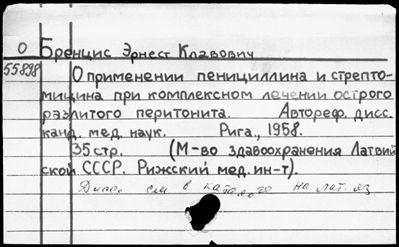 О Бренцис Эрнест Клавович
55898
О применении пенициллина и стрепто-
мицина при комплексном лечении острого
разлитого перитонита. Автореф. дисс.
канд. мед. наук. Рига, 1958.
35 стр. (М-во здавоохранения Латвий
ской ССР. Рижский мед. ин-т).
Дисс. см в каталоге на лат. яз.